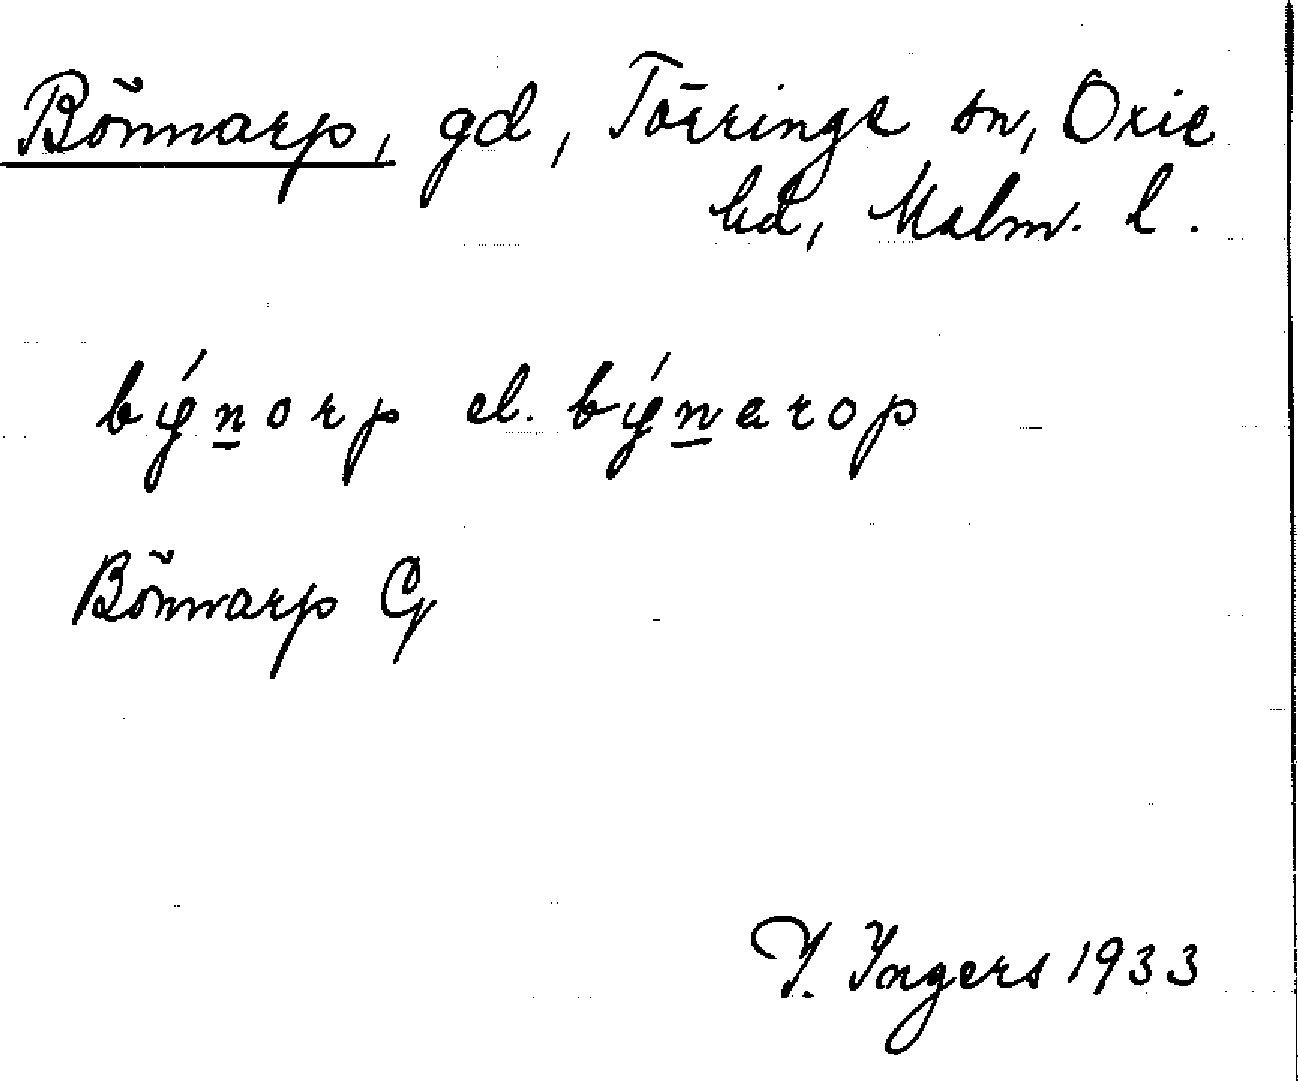 Bönnarp, gd, Törringe sn, Oxie
hd, Malm. l.
býn̲orp el. býn̲arop
Bönnarp G
I. Ingers 1933